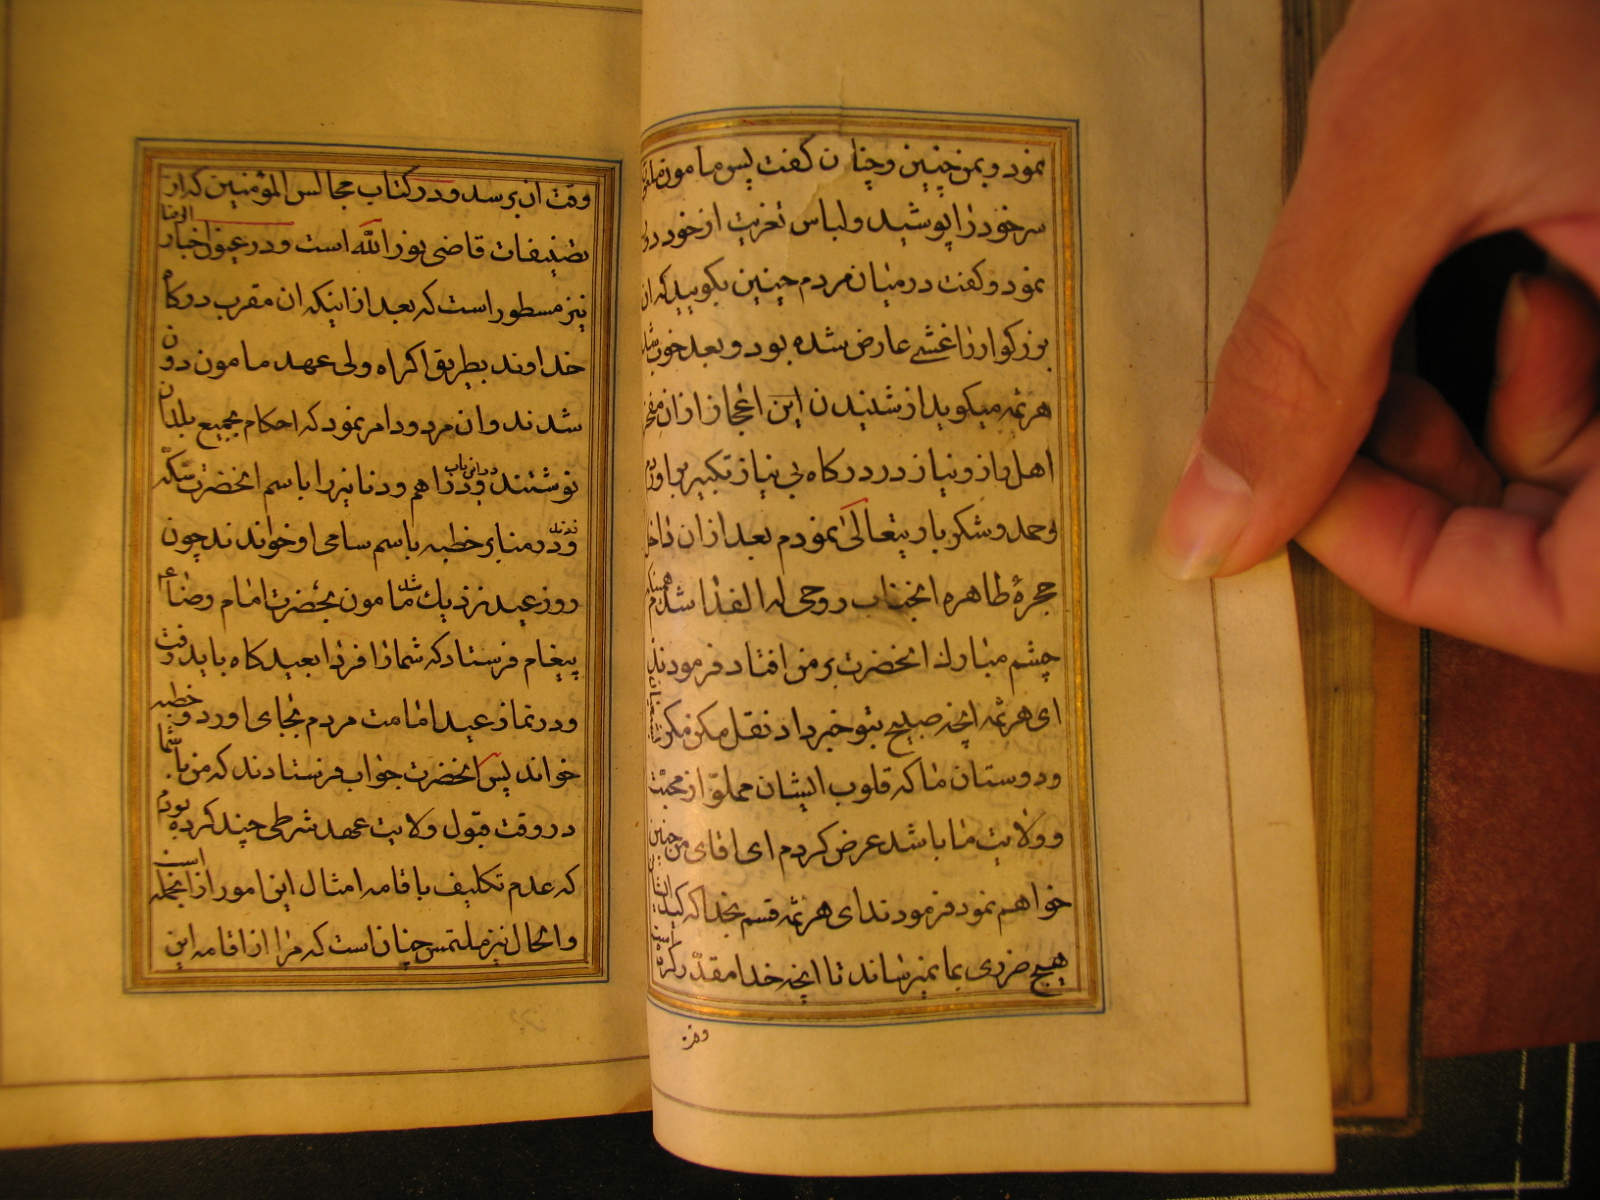 نمود و بمن چنین و چنان گفت پس مامون ملعون
سر خود را پوشید و لباس تعزیت از خود دور
نمود و گفت در میان مردم چنین بگویید که ان
بزرکوار را غشی عارض شده بود و بعد خوب شد
هرثمه میکوید از شنیدن این اعجاز از ان مفخر
اهل راز و نیاز در درکاه بی نیاز تکبیر براوردم
و حمد و شکر باریتعالی نمودم بعد از ان داخل
حجرهٔ طاهره انجناب روحی له الفدا شدم همینکه
چشم مبارک انحضرت بر من افتاد فرمودند
ای هرثمه انچه صبیح بتو خبر داد نقل مکن مکر بشیعیان
و دوستان ما که قلوب ایشان مملوّ از محبّت
و ولایت ما باشد عرض کردم ای اقای من چنین
خواهم نمود فرمودند ای هرثمه قسم بخدا که کید ایشان
هیچ ضرری بما نمیرساند تا انچه خدا مقدّر کرده است
وقت
وقت ان برسد و در کتاب مجالس المؤمنین که از
تصنیفات قاضی نور الله است و در عیون اخبار الرضا
نیز مسطور است که بعد از اینکه ان مقرب درکاه
خداوند بطریق اکراه ولی عهد مامون دون
شدند و ان مردود امر نمود که احکام بجمیع بلدان
نوشتند و دراهم و دنانیر را باسم انحضرت سکّه
زدند و در منابر خطبه باسم سامی او خواندند چون
روز عید نزدیک شد مامون بحضرت امام رضا ع
پیغام فرستاد که شما را فردا بعیدکاه باید رفت
و در نماز عید امامت مردم بجای اورد و خطبه
خواند پس انحضرت جواب فرستادند که من با شما
در وقت قبول ولایت عهد شرطی چند کرده بودم
که عدم تکلیف باقامه امثال این امور از انجمله است
و الحال نیز ملتمس چنان است که مرا از اقامه این